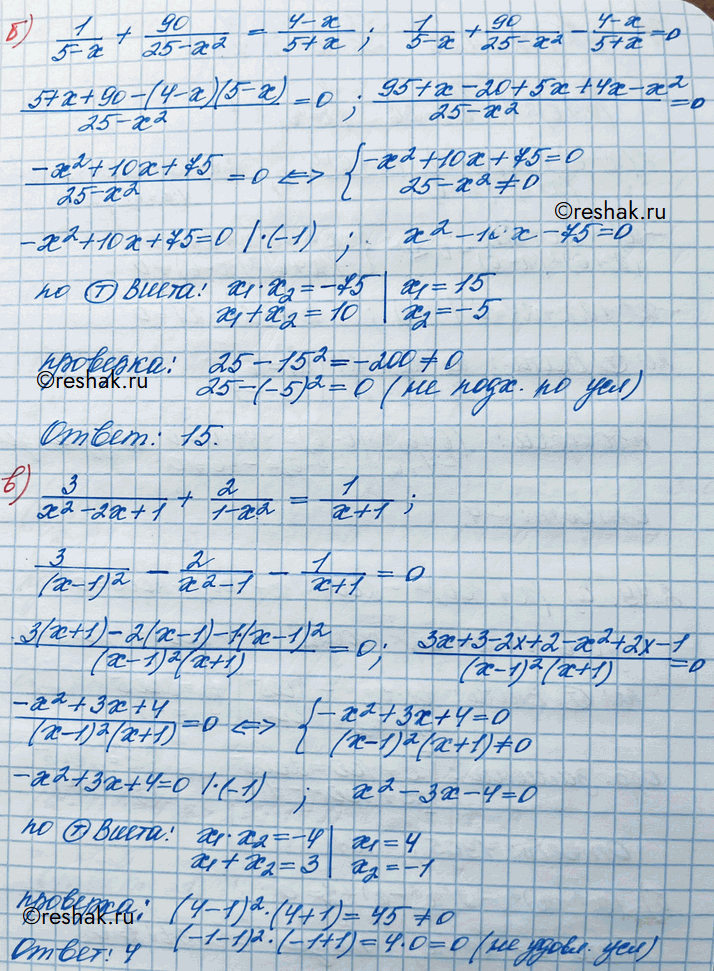 б) 1/(5-x) + 90/(25-x²) = (4-x)/(5+x) ; 1/(5-x) + 90/(25-x²) - (4-x)/(5+x) = 0
(5+x+90-(4-x)(5-x))/(25-x²) = 0 ; (95+x-20+5x+4x-x²)/(25-x²) = 0
(-x²+10x+75)/(25-x²) = 0 <=> { -x²+10x+75=0
25-x²≠0
©reshak.ru
-x²+10x+75=0 |·(-1) ; x²-10x-75=0
по Ⓣ Виета: x₁·x₂=-75 | x₁=15
x₁+x₂=10 | x₂=-5
проверка: 25-15²=-200≠0
©reshak.ru
25-(-5)²=0 (не подх. по усл)
Ответ: 15.
в) 3/(x²-2x+1) + 2/(1-x²) = 1/(x+1) ;
3/(x-1)² - 2/(x²-1) - 1/(x+1) = 0
(3(x+1)-2(x-1)-1·(x-1)²)/((x-1)²(x+1)) = 0 ; (3x+3-2x+2-x²+2x-1)/((x-1)²(x+1)) = 0
(-x²+3x+4)/((x-1)²(x+1)) = 0 <=> { -x²+3x+4=0
(x-1)²(x+1)≠0
-x²+3x+4=0 |·(-1) ; x²-3x-4=0
по Ⓣ Виета: x₁·x₂=-4 | x₁=4
x₁+x₂=3 | x₂=-1
проверка: (4-1)²·(4+1)=45≠0
©reshak.ru
(-1-1)²·(-1+1)=4·0=0 (не удовл. усл)
Ответ: 4